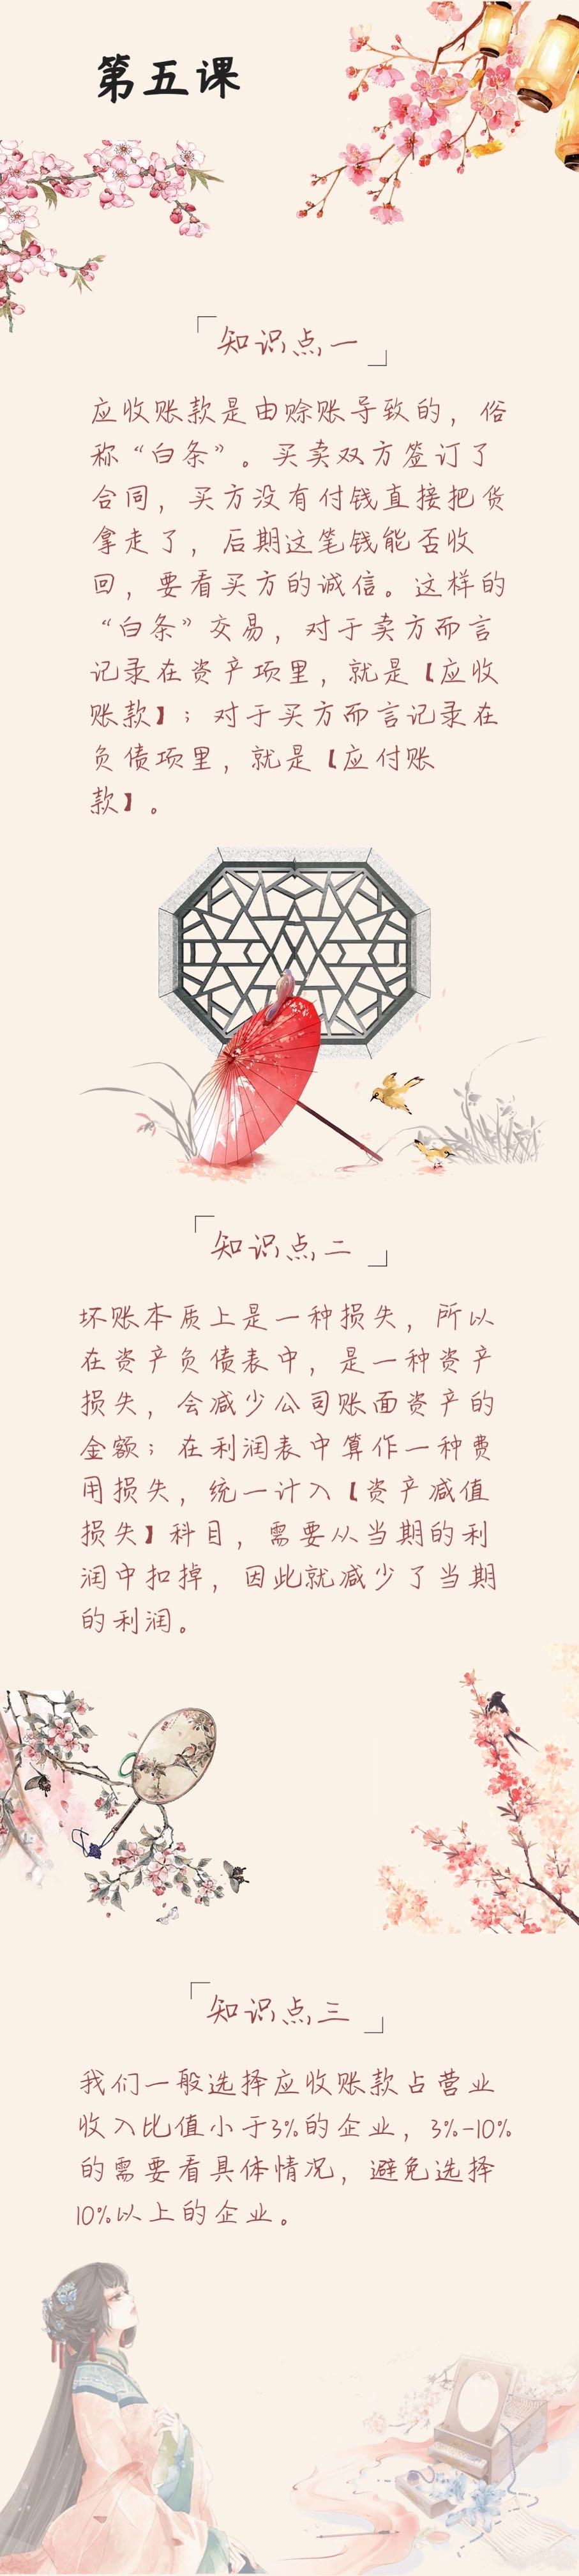 第五课
知识点一
应收账款是由赊账导致的，俗
称“白条”。买卖双方签订了
合同，买方没有付钱直接把货
拿走了，后期这笔钱能否收
回，要看买方的诚信。这样的
“白条”交易，对于卖方而言
记录在资产项里，就是【应收
账款】；对于买方而言记录在
负债项里，就是【应付账
款】。
知识点二
坏账本质上是一种损失，所以
在资产负债表中，是一种资产
损失，会减少公司账面资产的
金额；在利润表中算作一种费
用损失，统一计入【资产减值
损失】科目，需要从当期的利
润中扣掉，因此就减少了当期
的利润。
知识点三
我们一般选择应收账款占营业
收入比值小于3%的企业，3%-10%
的需要看具体情况，避免选择
10%以上的企业。